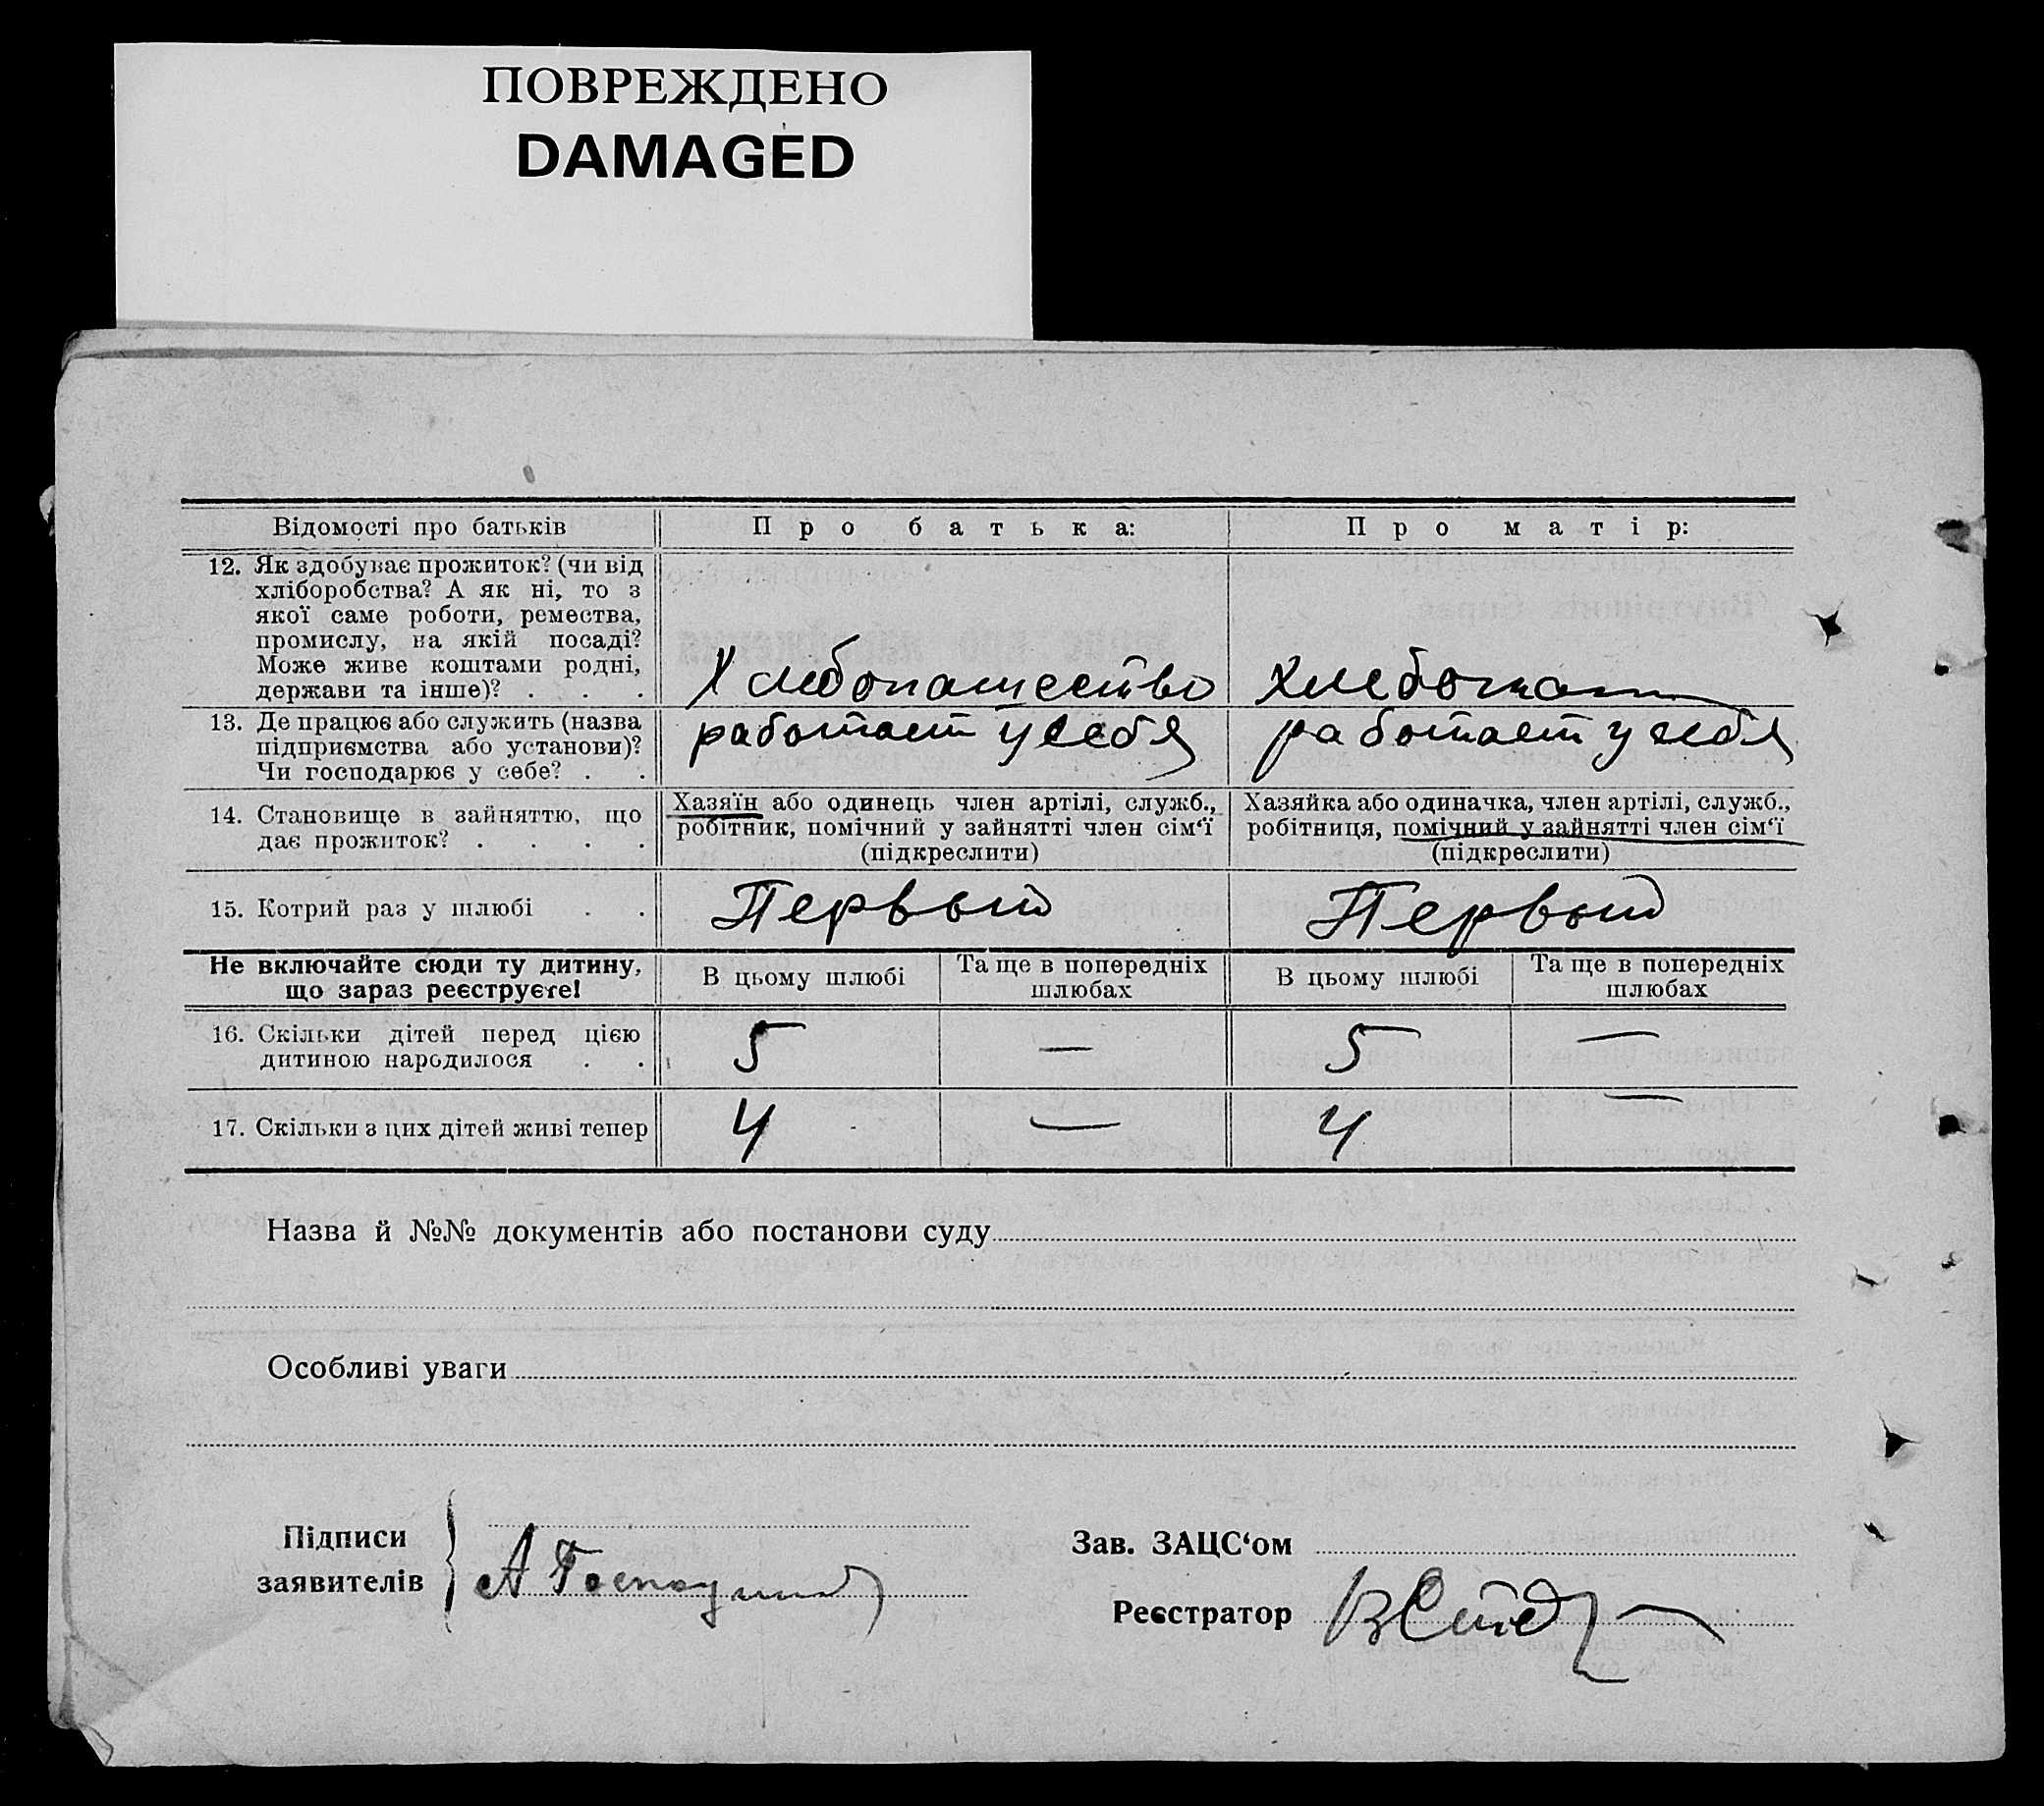 ПОВРЕЖДЕНО
DAMAGED
Відомості про батьків
Про батька:
Про матір:
12. Як здобуває прожиток? (чи від
хліборобства? А як ні, то з
якої саме роботи, ремества,
промислу, на якій посаді?
Може живе коштами родні,
держави та інше)? . . .
Хлебопашество
хлебопаш
13. Де працює або служить (назва
підприємства або установи)?
Чи господарює у себе? . .
работает у себя
работает у себя
14. Становище в зайняттю, що
дає прожиток? . . . .
Хазяїн або одинець член артілі, служб.,
робітник, помічний у зайнятті член сім‘ї
(підкреслити)
Хазяйка або одиначка, член артілі, служб.,
робітниця, помічний у зайнятті член сім‘ї
(підкреслити)
15. Котрий раз у шлюбі . .
Первый
Первый
Не включайте сюди ту дитину,
що зараз реєструєте!
В цьому шлюбі
Та ще в попередніх
шлюбах
В цьому шлюбі
Та ще в попередніх
шлюбах
16. Скільки дітей перед цією
дитиною народилося . .
5
—
5
—
17. Скільки з цих дітей живі тепер
4
—
4
—
Назва й №№ документів або постанови суду
Особливі уваги
Підписи
заявителів
А
Зав. ЗАЦС‘ом
Реєстратор